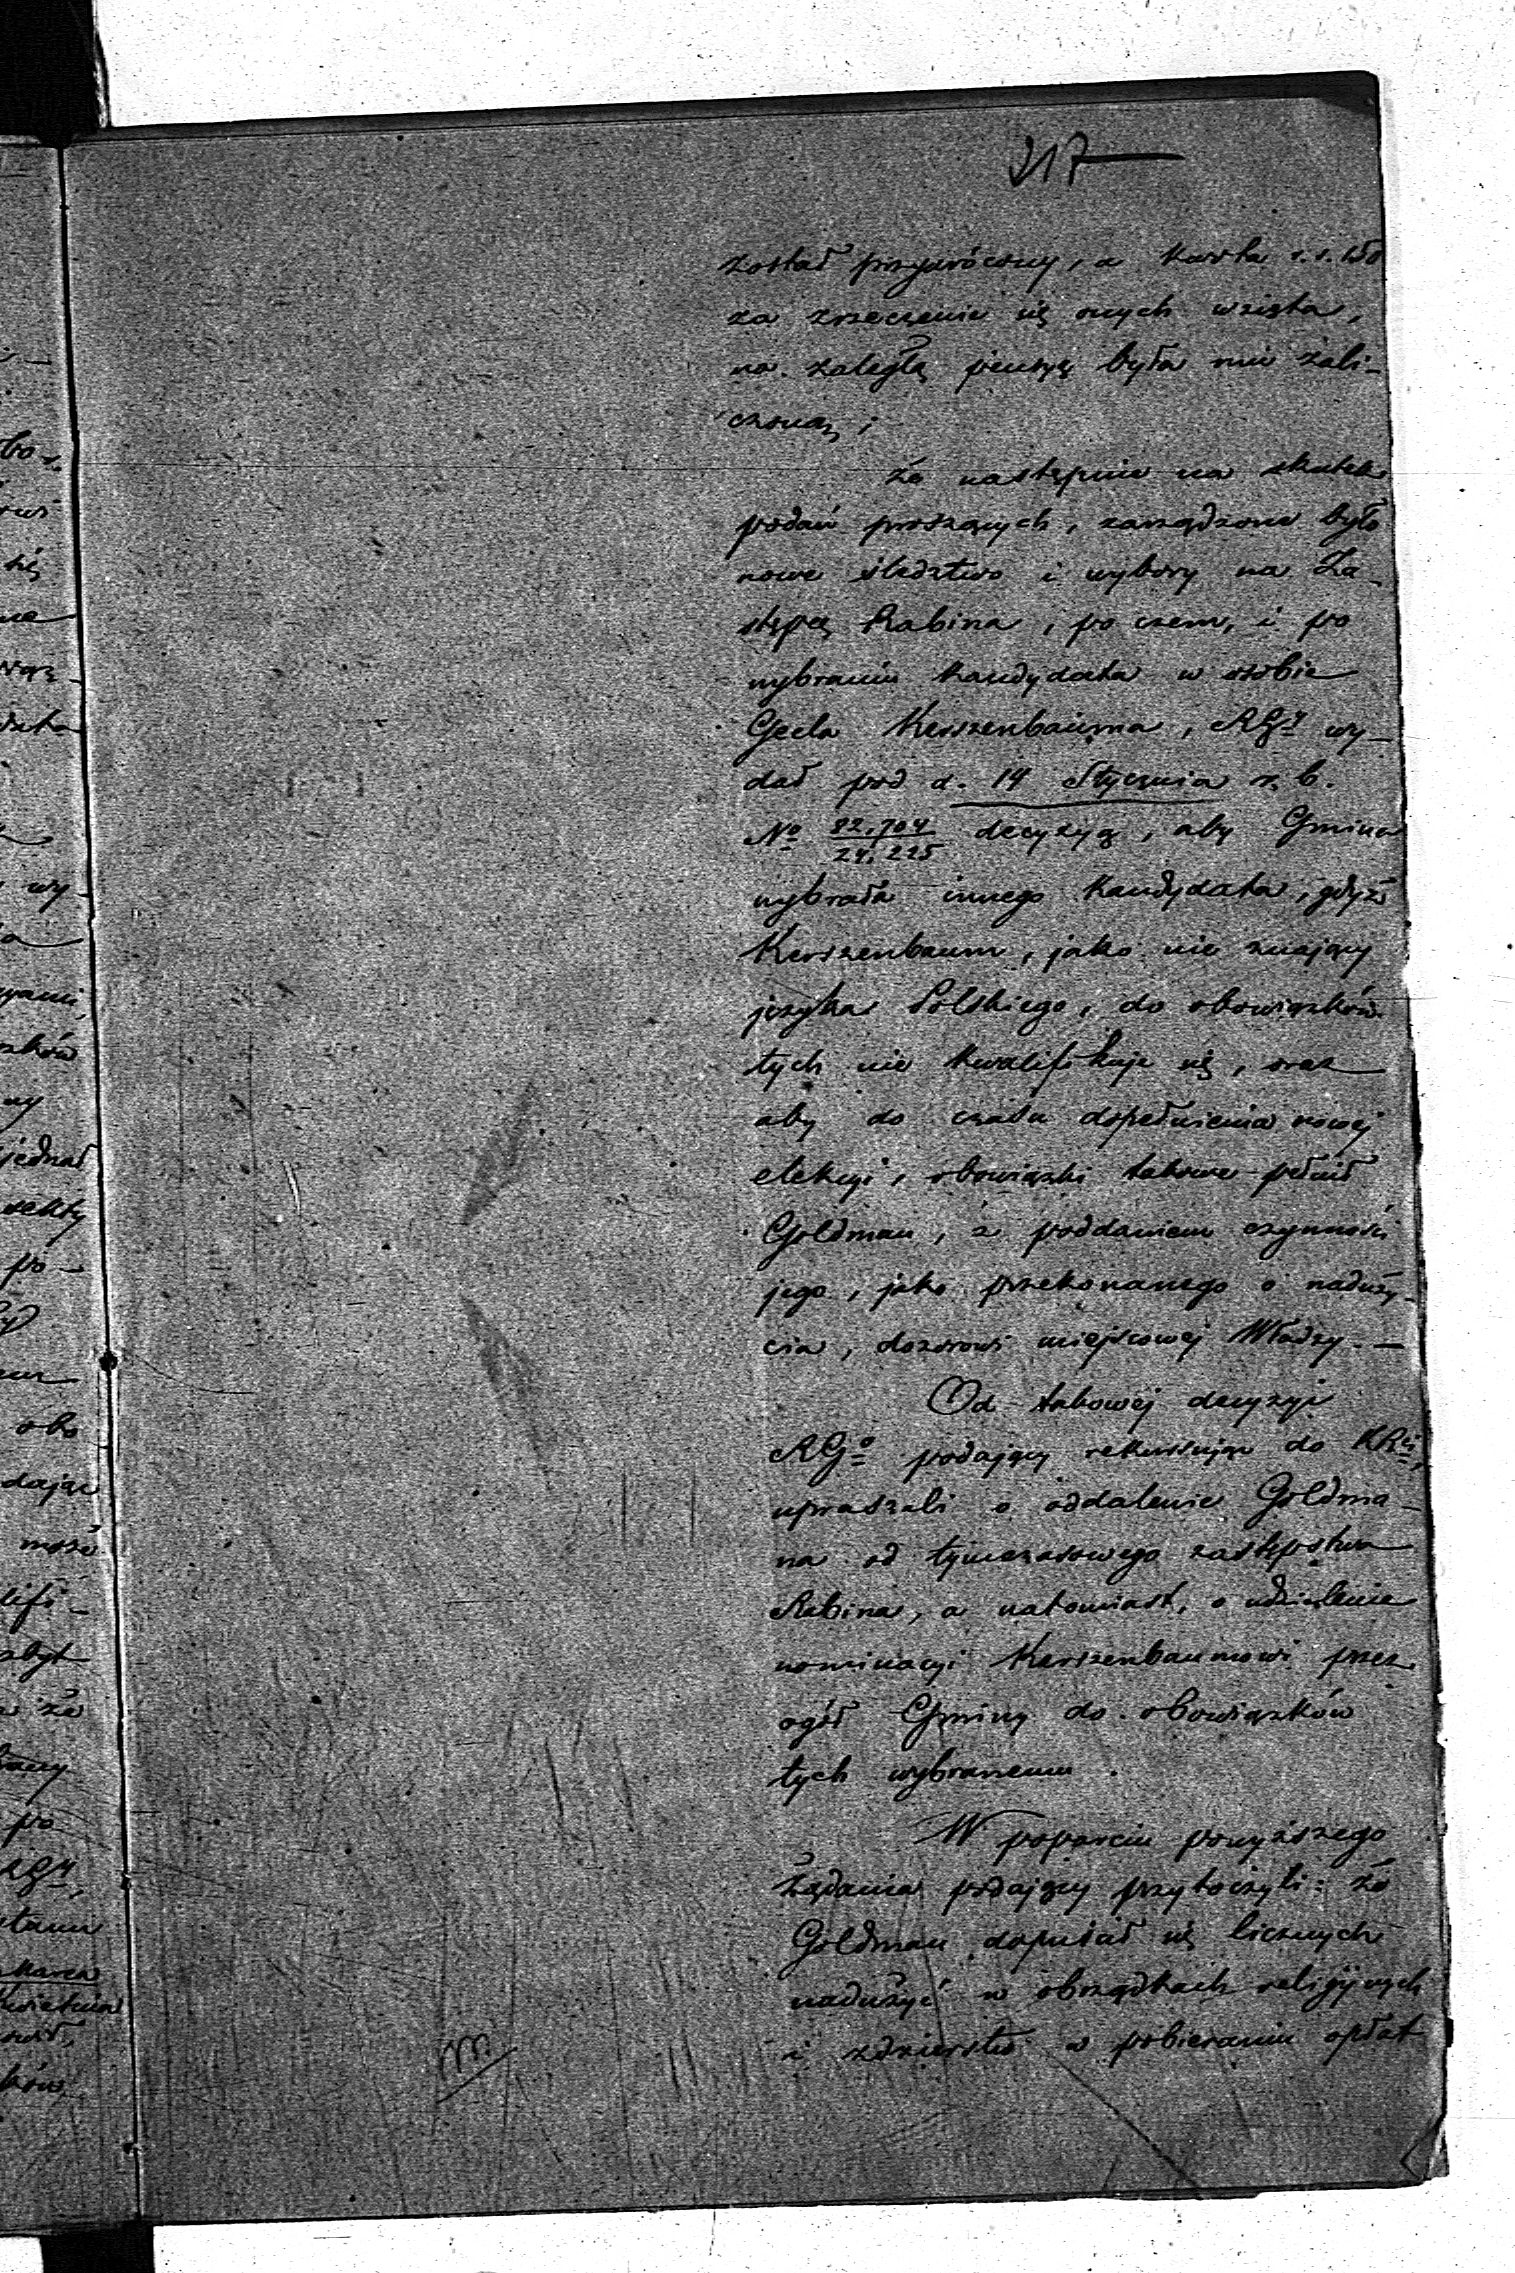 217
został przywrócony, a kwota r.s. 150
za zrzeczenie się onych wzięta,
na zaległą pensyę była mu zali-
czoną;
że następnie na skutek
podań proszących, zarządzone było
nowe śledztwo i wybory na Za-
stępcę Rabina, po czem, i po
wybraniu kandydata w osobie
Gecla Kerszenbauma, RGy wy-
dał pod d. 14 Stycznia r. b.
No 82,704/24,225 decyzyą, aby Gmina
wybrała innego kandydata, gdyż
Kerszenbaum, jako nie znający
języka Polskiego, do obowiązków
tych nie kwalifikuje się, oraz
aby do czasu dopełnienia nowej
elekcyi, obowiązki takowe pełnił
Goldman, z poddaniem czynności
jego, jako przekonanego o naduży-
cia, dozorowi miejscowej Władzy. —
Od takowej decyzyi
RGo podający rekursując do KRi,
upraszali o oddalenie Goldma-
na od tymczasowego zastępstwa
Rabina, a natomiast, o udzielenie
nominacyi Kerszenbaumowi przez
ogół Gminy do obowiązków
tych wybranemu.
W poparciu powyższego
żądania podający przytoczyli: że
Goldman dopuścił się licznych
nadużyć w obrządkach religijnych
i zdzierstw w pobieraniu opłat